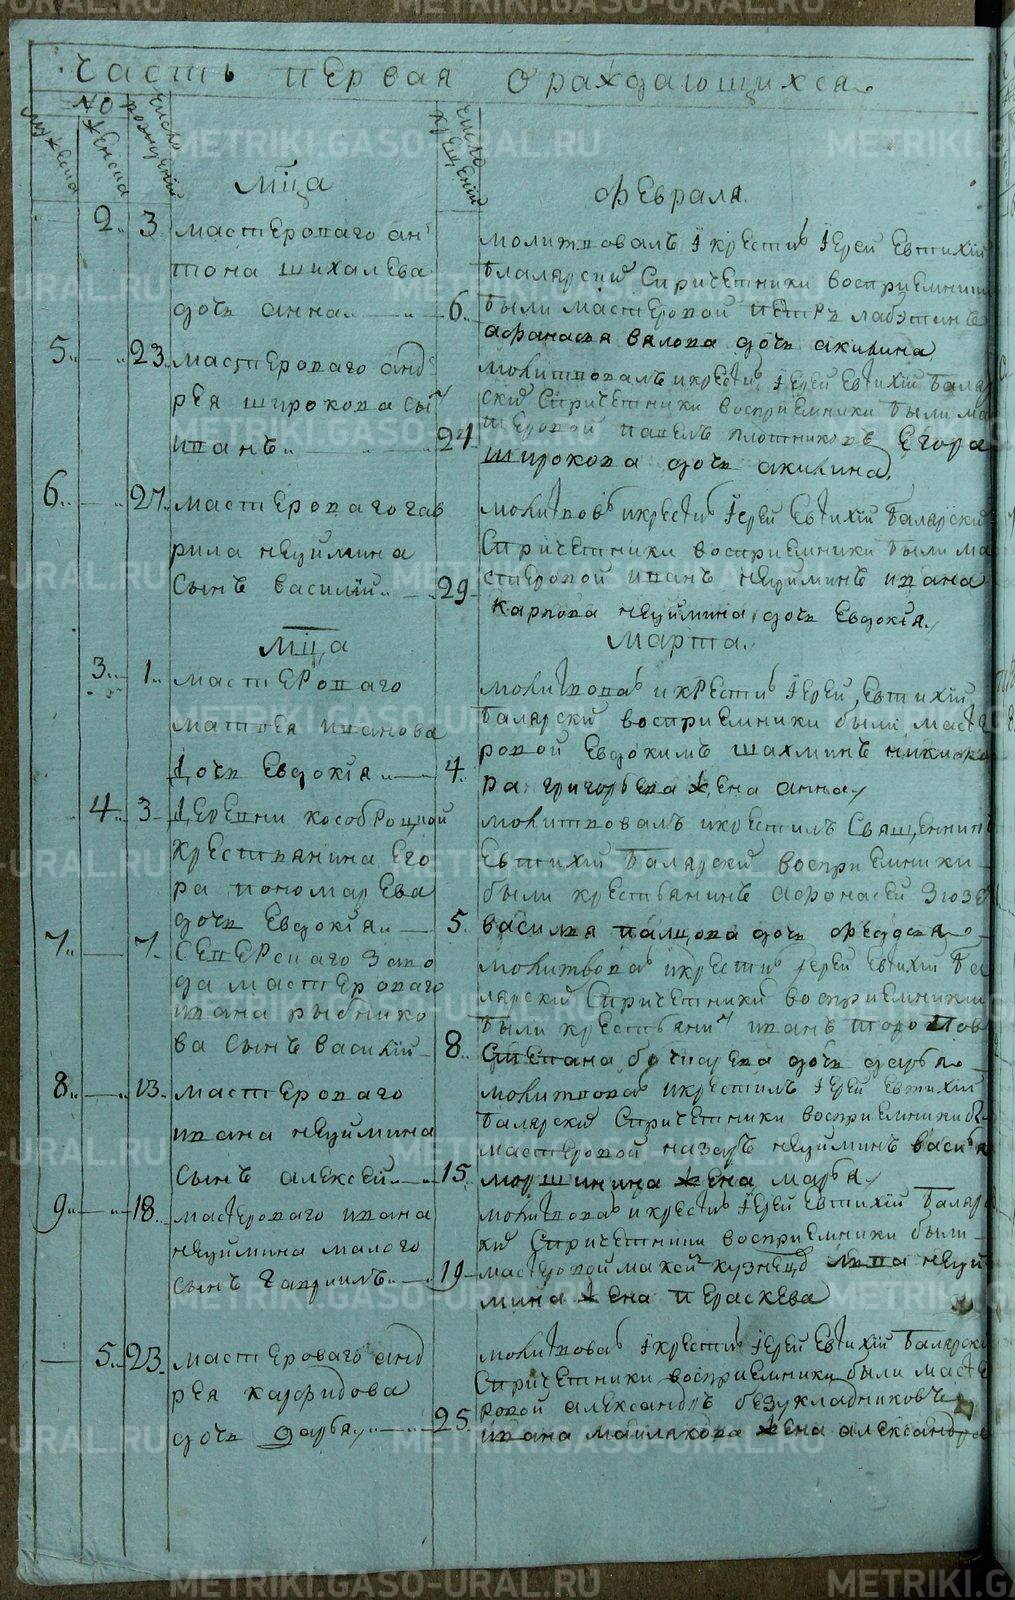 часть первая ораждающихся
№
мужеска
женска
число рождений
число крещений
мца февраля
2 3 мастероваго ан
тона шихалева
дочь анна 6
молитвовалъ и крестив иерей Евтихий
Балярский Спричетники восприемники
были мастеровой петръ
афанасья вялова дочь акилина
5 23 мастероваго анд
рея широкова сы
иванъ 24
молитвовалъ и крестив иерей Евтихий Баляр
ский Спричетники восприемники были ма
теровой павелъ плотниковъ Егора
широкова дочь акилина
6 27 мастероваго гав
рила неуймина
Сынъ василий 29
молитвов и крестив иерей Евтихий Балярский
Спричетники восприемники были ма
стеровой иванъ неуйминъ ивана
карпова неуймина дочь Евдокия
мца марта
3 1 мастероваго
матвея иванова
дочь Евдокия 4
молитвова и крестив иерей Евтихий
Балярский восприемники были масте
ровой Евдокимъ шахминъ никифо
ра григорьева жена анна
4 3 деревни кособродной
крестьянина Его
ра пономарева
дочь Евдокия 5
молитвовалъ и крестилъ Священникъ
Евтихий Балярский восприемники
были крестьянинъ афонасей Зюзе
василья дочь федосья
7 7 Северскаго Заво
да мастероваго
ивана рыбнико
ва Сынъ василий 8
молитвова и крестив иерей Евтихий Ба
лярский Спричетники восприемники
были крестьянин иванъ
Степана дочь дарья
8 13 мастероваго
ивана неуймина
Сынъ алексей 15
молитвова и крестилъ иерей Евтихий
Балярский Спричетники восприемники б
мастеровой назаръ неуйминъ василья
моршинина жена марья
9 18 мастероваго ивана
неуймина малого
Сынъ гавриилъ 19
молитвова и крестив иерей Евтихий Балярс
кий Спричетники восприемники были
мастеровой кузнец неуй
мина жена пераскева
5 23 мастероваго анд
рея карфидова
дочь дарья 25
молитвова и крестив иерей Евтихий Балярски
Спричетники восприемники были масте
ровой александръ безукладниковъ
ивана жена александра
METRIKI.GASO-URAL.RU